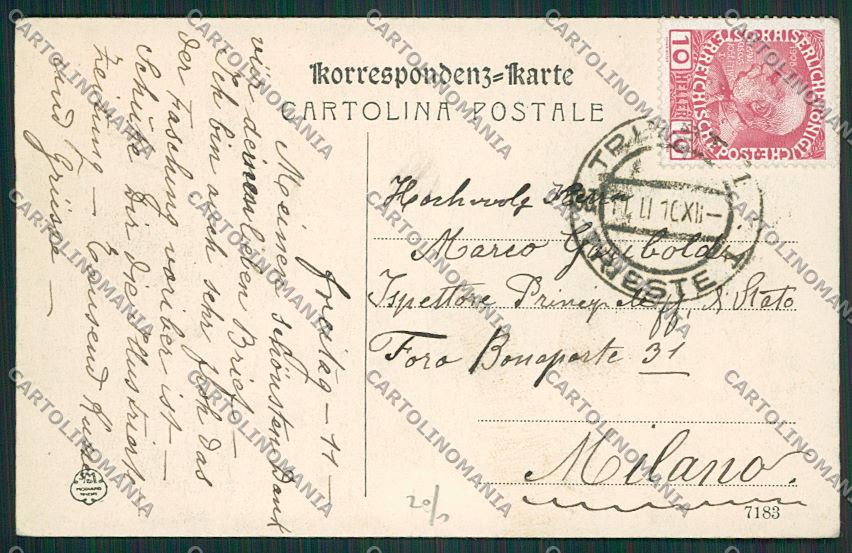 Korrespondenz-Karte
CARTOLINA POSTALE
Freitag - 11 -
Meinen schönsten Dank
für deinen lieben Brief -
Ich bin auch sehr froh das
der Fasching vorüber ist -
Schicke Dir die Illustrierte
Zeitung - Tausend Küsse
und Grüsse -
Hochwolg Herrn
Marco Gariboldi
Ispettore Princip. ff. di Stato
Foro Bonaparte 31
Milano.
7183
20/1
10 HELLER 10
KAISERLICH KÖNIGLICHE
ÖSTERREICHISCHE POST
1908
TRIEST 1
11 II 10 XII -
TRIESTE 1
CARTOLINOMANIA